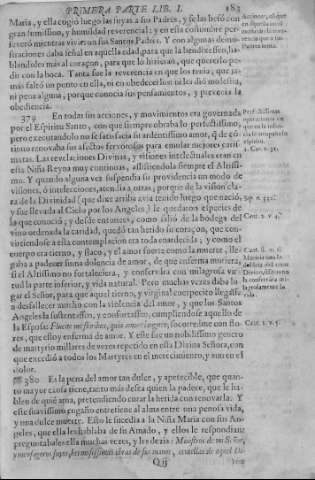 PRIMERA PARTE LIB. I. 183
Maria, y ella cogio luego las suyas a sus Padres, y selas besò con
gran sumission, y humildad reverencial: y en esta costumbre per-
severò mientras vivieron sus Santos Padres. Y con algunas demos-
traciones daba señal en aquella edad para que la bendixessen, ha-
blandoles mas al coraçon, para que lo hiziessen, que quererlo pe-
dir con la boca. Tanta fue la reverencia en que los tenia, que ja-
mas faltò un punto en ella, ni en obedecerlos: ni les diò molestia,
ni pena alguna, porque conocia sus pensamientos, y prevenia la
obediencia.
379 En todas sus acciones, y movimientos era governada
por el Espiritu Santo, con que siempre obraba lo perfectissimo,
pero executandolo no se satisfacia su ardentissimo amor, que de cõ-
tinuo renovaba sus afectos fervorosos para emular mejores caris-
matas. Las revelaciones Divinas, y visiones intelectuales eran en
esta Niña Reyna muy continuas, assistiendola siempre el Altissi-
mo. Y quando alguna vez suspendia su providencia un modo de
visiones, ò intelecciones, atendia a otras, porque de la vision cla-
ra de la Divinidad (que dixe arriba avia tenido luego que naciò,
y fue llevada al Cielo por los Angeles) le quedaron especies de
la que conociò, y desde entonces, como saliò de la bodega del
vino ordenada la caridad, quedò tan herido su coraçon, que con-
virtiendose a esta contemplacion era toda enardecida; y como el
cuerpo era tierno, y flaco, y el amor fuerte como la muerte, lle-
gaba a padecer suma dolencia de amor, de que enferma muriera,
si el Altissimo no fortaleciera, y conservara con milagrosa vir-
tud la parte inferior, y vida natural. Pero muchas vezes daba lu-
gar el Señor, para que aquel tierno, y virginal cuerpecito llegasse
a desfallecer mucho con la violencia del amor, y que los Santos
Angeles la sustentassen, y confortassen, cumpliendose aquello de
la Esposa: Fulcite me floribus, quia amore langueo; socorredme con flo-
res, que estoy enferma de amor. Y este fue un nobilissimo genero
de martyrio millares de vezes repetido en esta Divina Señora, con
que excediò a todos los Martyres en el merecimiento, y aun en el
dolor.
380 Es la pena del amor tan dulce, y apetecible, que quan-
to mayor causa tiene, tanto mas desea quien la padece, que le ha-
blen de quien ama, pretendiendo curar la herida con renovarla: Y
este suavissimo engaño entretiene al alma entre una penosa vida,
y una dulce muerte. Esto le sucedia a la Niña Maria con sus An-
geles, que ella les hablaba de su Amado, y ellos le respondian:
preguntabales ella muchas vezes, y les dezia: Ministros de mi Señor,
y mensageros suyos, hermosissimas obras de sus manos, centellas de aquel Di-